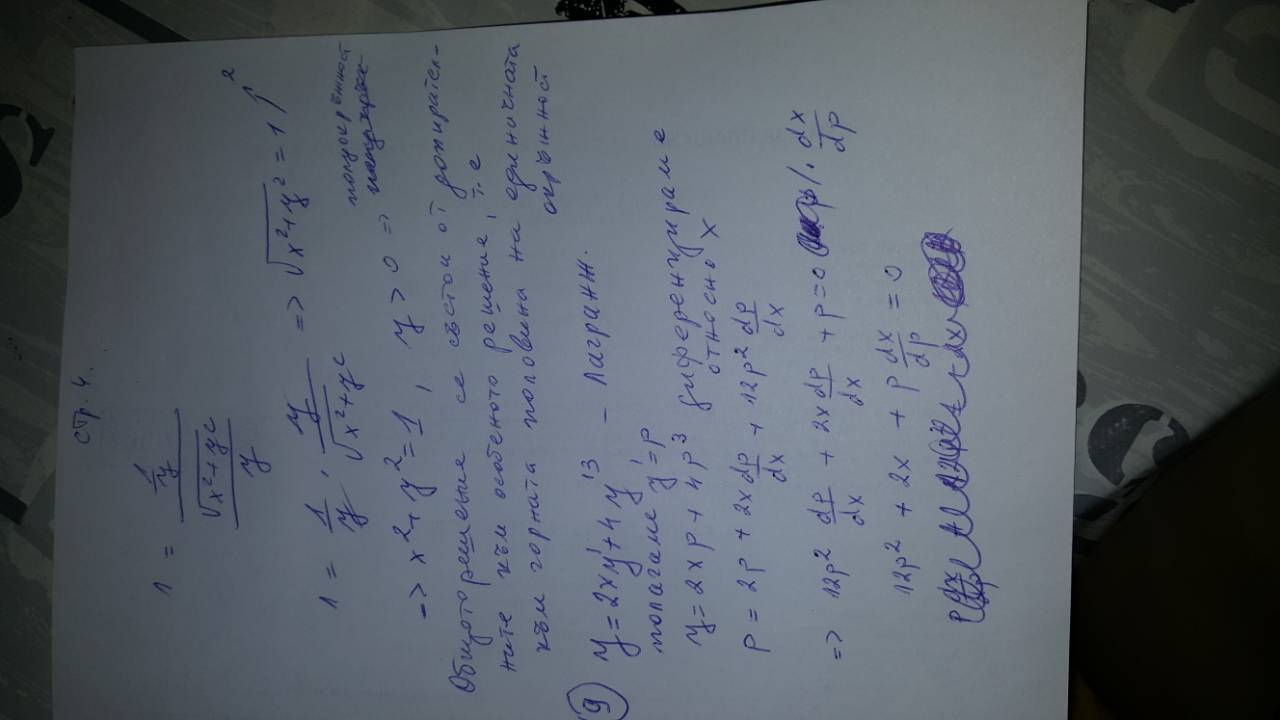 стр. 4.
1 = (1/y) / (√(x²+y²) / y)
1 = 1/y · y/√(x²+y²) => √(x²+y²) = 1 /²
=> x²+y²=1, y>0 => полуокръжност
Общото решение се състои от допирател-
ните към особеното решение, т.е
към горната половина на единичната
окръжност
9 y=2xy'+4y'³ – Лагранж.
полагаме y'=p
y=2xp+4p³ диференцираме
относно x
p = 2p + 2x dp/dx + 12p² dp/dx
=> 12p² dp/dx + 2x dp/dx + p=0 /· dx/dp
12p² + 2x + p dx/dp = 0